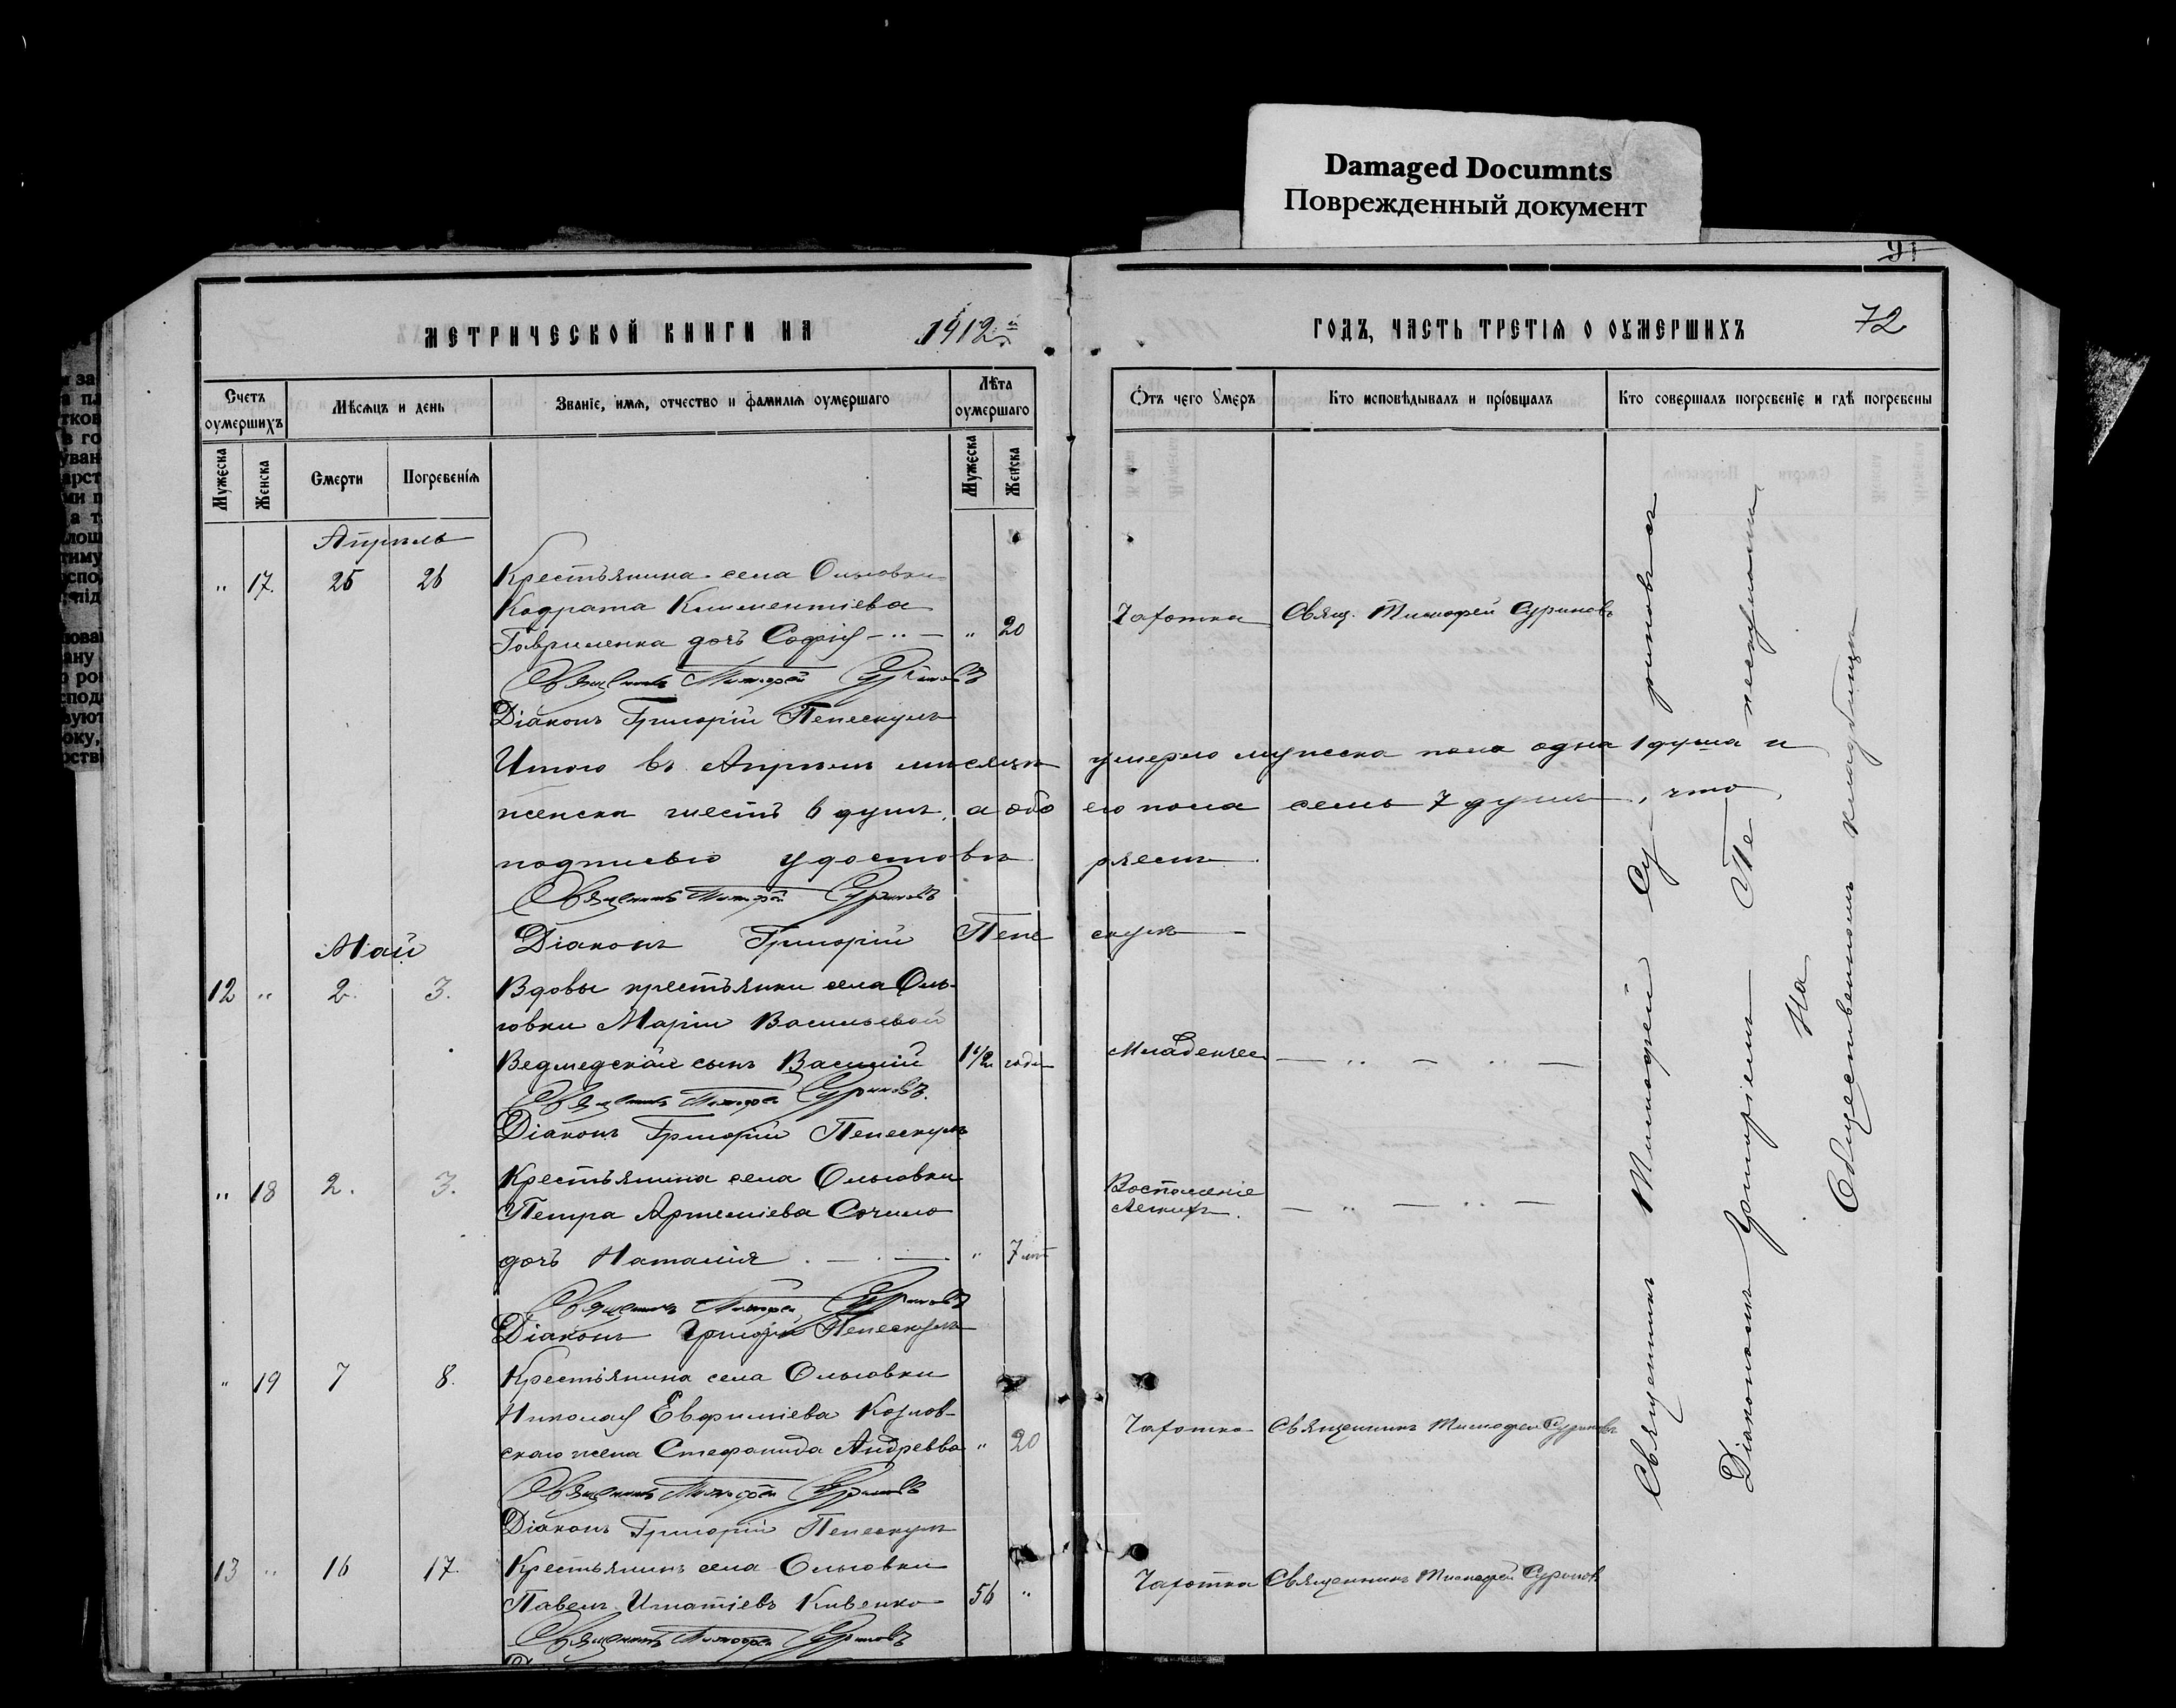 Damaged Documnts
Поврежденный документ
91
МЕТРИЧЕСКОЙ КНИГИ НА 1912 й ГОДЪ, ЧАСТЬ ТРЕТІѦ О ОУМЕРШИХЪ 72
Счетъ оумершихъ
Мѣсѧцъ и день
Званіе, имѧ, отчество и фамиліѧ оумершаго
Лѣта оумершаго
Отъ чего Умеръ
Кто исповѣдывалъ и пріобщалъ
Кто совершалъ погребеніе и гдѣ погребены
Мужеска
Женска
Смерти
Погребеніѧ
Мужеска
Женска
Апрѣль
" 17. 25 26 Крестьянина села Ольговки
Кодрата Климентіева
Говриленка дочь Софія — " — " 20 Чахотка Свящ. Тимофей Суриновъ
Священникъ Тимофей Суриновъ
Діаконъ Григорій Пепескулъ
Итого въ Апрѣлѣ мѣсяцѣ умерло мужеска пола одна 1 душа и
женска шесть 6 душъ, а обоего пола семь 7 душъ, что
подписью удостовѣряемъ.
Священникъ Тимофей Суриновъ
Діаконъ Григорій Пепескулъ
Май
12 " 2. 3. Вдовы крестьянки села Оль-
говки Маріи Васильевой
Ведмедской сынъ Василій 1 1/2 года Младенчес — " — " —
Священникъ Тимофей Суриновъ.
Діаконъ Григорій Пепескулъ
" 18 2. 3. Крестьянина села Ольговки
Воспаленіе
Петра Артеміева Сочило
Легкихъ. — " — " —
дочь Наталія . — . — " 7 лѣт
Священникъ Тимофей Суриновъ
Діаконъ Григорій Пепескулъ
" 19 7 8. Крестьянина села Ольговки
Николая Евфиміева Козлов-
скаго жена Стефанида Андреева " 20 Чахотка Священникъ Тимофей Суриновъ
Священникъ Тимофей Суриновъ
Діаконъ Григорій Пепескулъ
13 " 16 17. Крестьянинъ села Ольговки
Павелъ Игнатіевъ Кивенко 56 " Чахотка Священникъ Тимофей Суринов
Священникъ Тимофей Суриновъ
Священникъ Тимофей Суриновъ съ
Діакономъ Григоріемъ Пепескуломъ
На
Общественномъ кладбищѣ